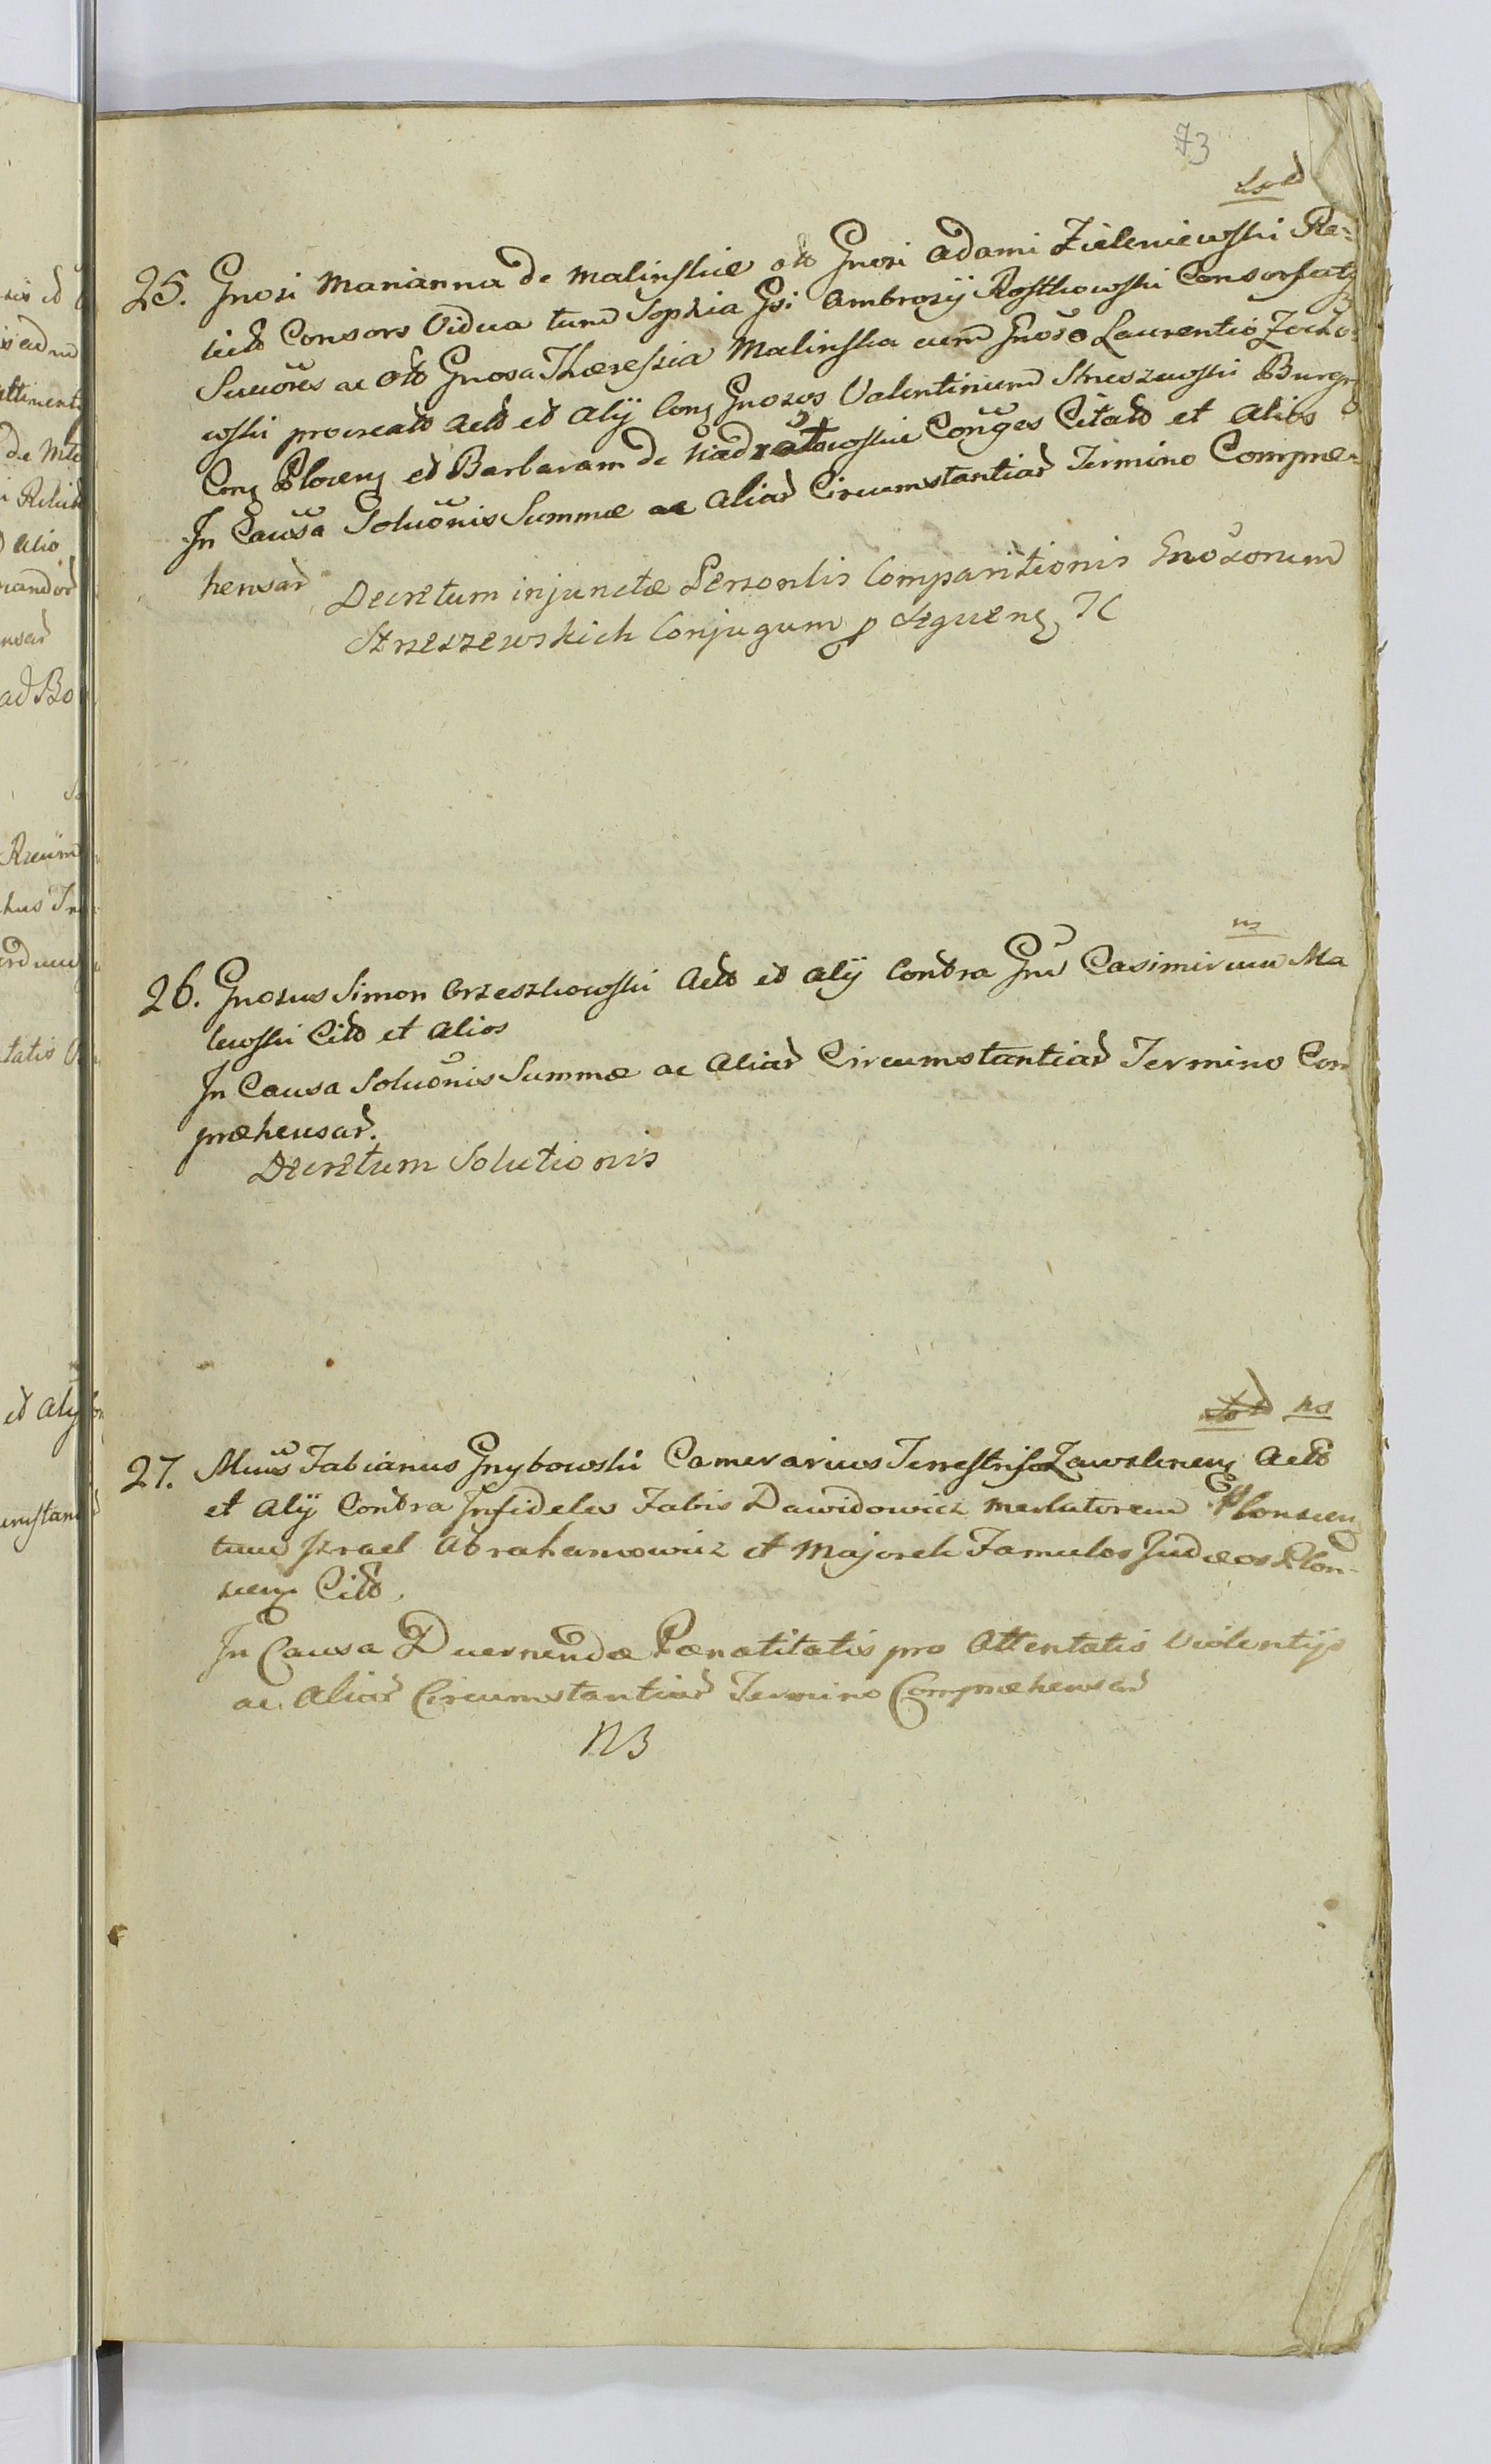 73
25. Gnosi Marianna de Malinskie olto Gnosi Adami Zieleniewski Re=
licto Consors Vidua tum Sophia Gsi Ambrosij Rostkowski Consors
Sucores ac olto Gnosa Theressia Malinska cum Gnoso Laurentio Zocho=
wski procreato Acto et Alij Cong Gnosos Valentinum Strzeszewski Burgr
Cong Plocen et Barbaram de Conges Citato et Alios
In Causa Soluonis Summæ ac Aliar Circumstantiar Termino Compræ=
hensar
Decretum injunctæ Personlis Comparitionis Gnosorum
Strzeszewskich Conjugum p Sequen
ns
26. Gnosus Simon Orzeszkowski Acto et Alij Contra Gnu Casimirum Ma
lewski Cito et Alios
In Causa Soluonis Summæ ac Aliar Circumstantiar Termino Com
præhensar.
Decretum Solutionis
ns
27. Mcus Fabianus Gnybowski Camerarius Terrestris Zawskrnen Acto
et Alij Contra Infideles Fabis Dawidowicz Merkatorem Plonscen
tum Izrael Abrahamowicz et Majorek Famulos Judæos Plon-
scen Cito.
In Causa Decernendæ Pænalitatis pro Attentatis Violentijs
ac Aliar Circumstantiar Termino Compræhensar
NB